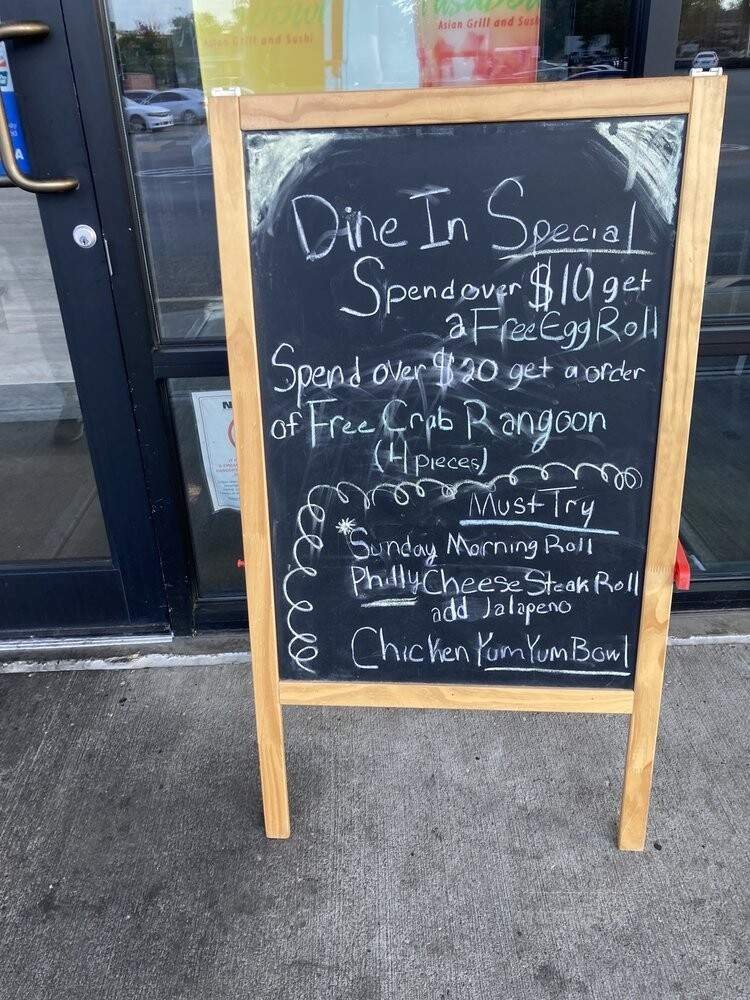 Asian Grill and Sushi
Asian Grill and Sushi
Dine In Special
Spend over $10 get
a Free Egg Roll
Spend over $20 get a order
of Free Crab Rangoon
(4 pieces)
Must Try
Sunday Morning Roll
Philly Cheese Steak Roll
add Jalapeno
Chicken Yum Yum Bowl